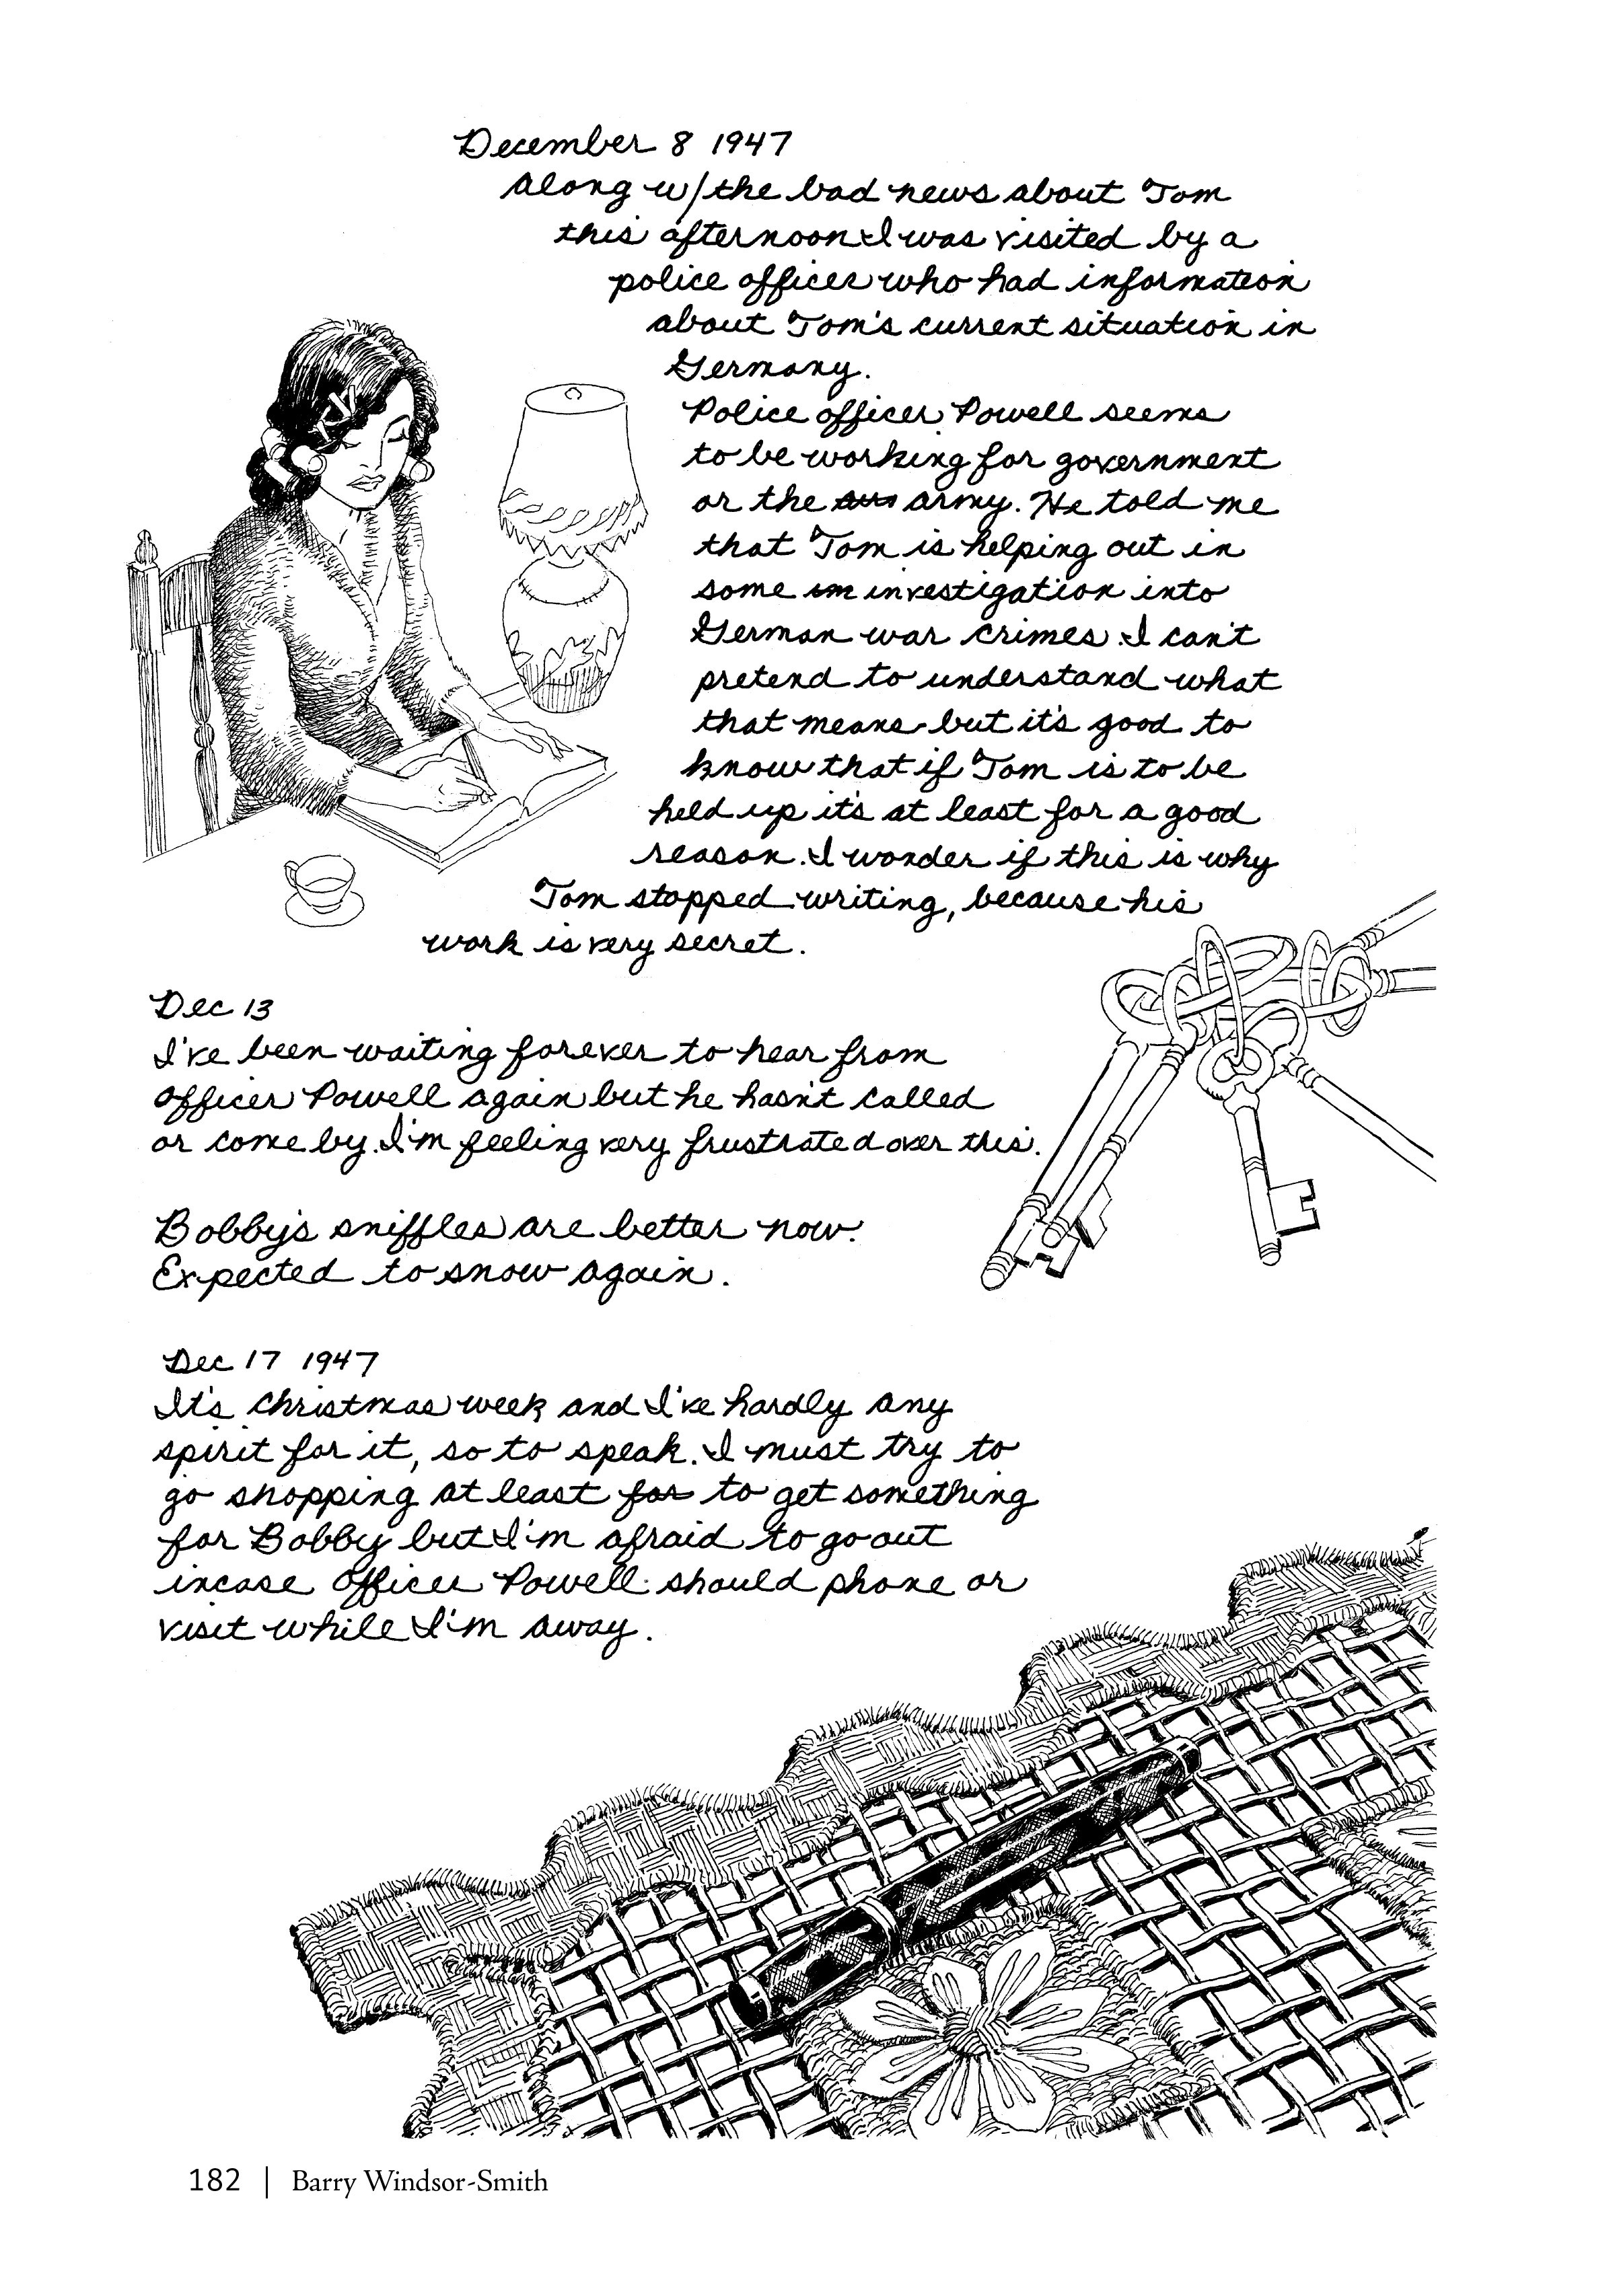 December 8 1947
Along w/the bad news about Tom
this afternoon I was visited by a
police officer who had information
about Tom's current situation in
Germany.
Police officer Powell seems
to be working for government
or the army. He told me
that Tom is helping out in
some im investigation into
German war crimes. I can't
pretend to understand what
that means but it's good to
know that if Tom is to be
held up it's at least for a good
reason. I wonder if this is why
Tom stopped writing, because his
work is very secret.
Dec 13
I've been waiting forever to hear from
Officer Powell again but he hasn't called
or come by. I'm feeling very frustrated over this.
Bobby's sniffles are better now.
Expected to snow again.
Dec 17 1947
It's Christmas week and I've hardly any
spirit for it, so to speak. I must try to
go shopping at least for to get something
for Bobby but I'm afraid to go out
incase Officer Powell should phone or
visit while I'm away.
182 | Barry Windsor-Smith